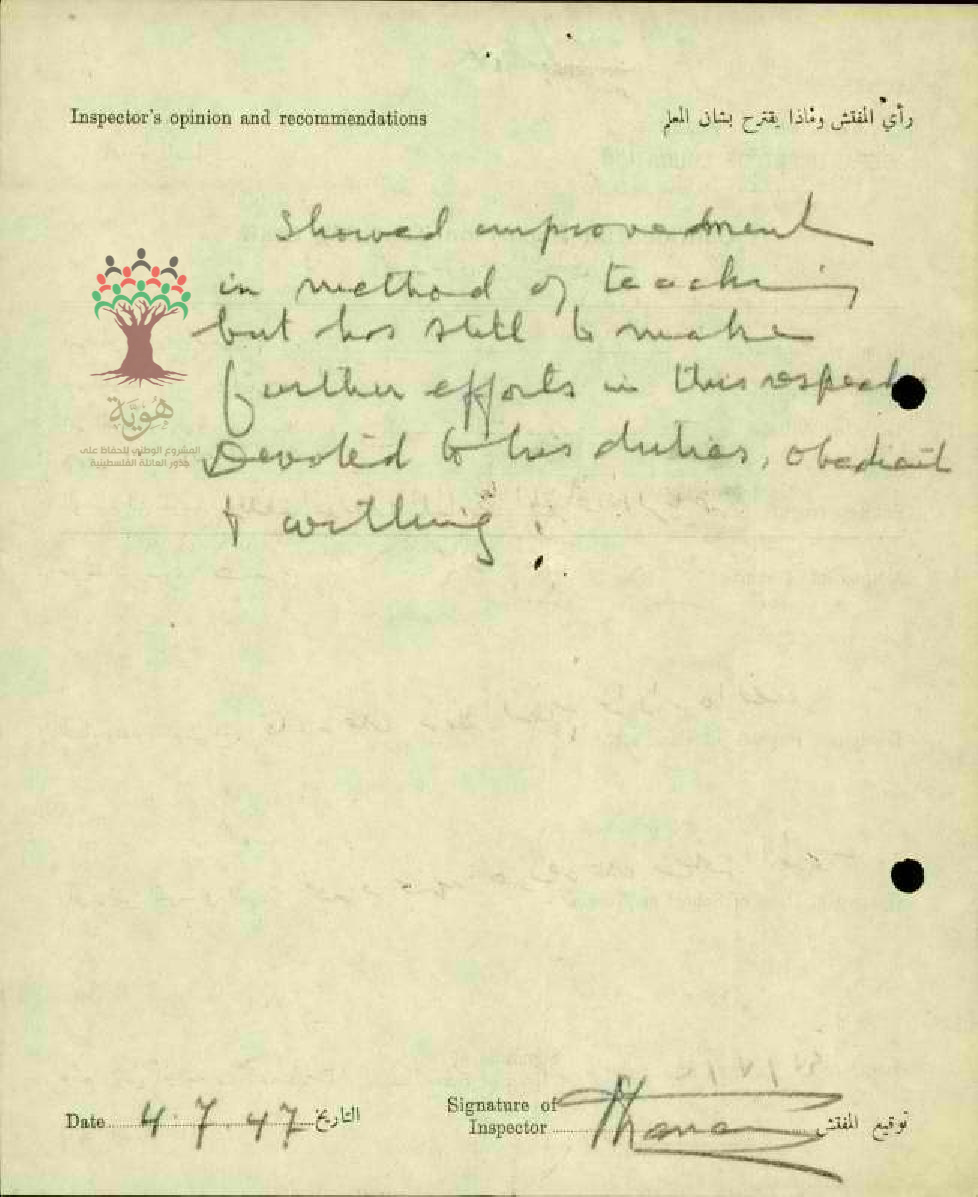 Inspector's opinion and recommendations
رأي المفتش وماذا يقترح بشان المعلم
Showed improvement
in method of teaching
but has still to make
further efforts in this respect
Devoted to his duties, obedient
& willing.
هُويَّة
المشروع الوطني للحفاظ على
جذور العائلة الفلسطينية
Date 4.7.47 التاريخ
Signature of
Inspector
توقيع المفتش